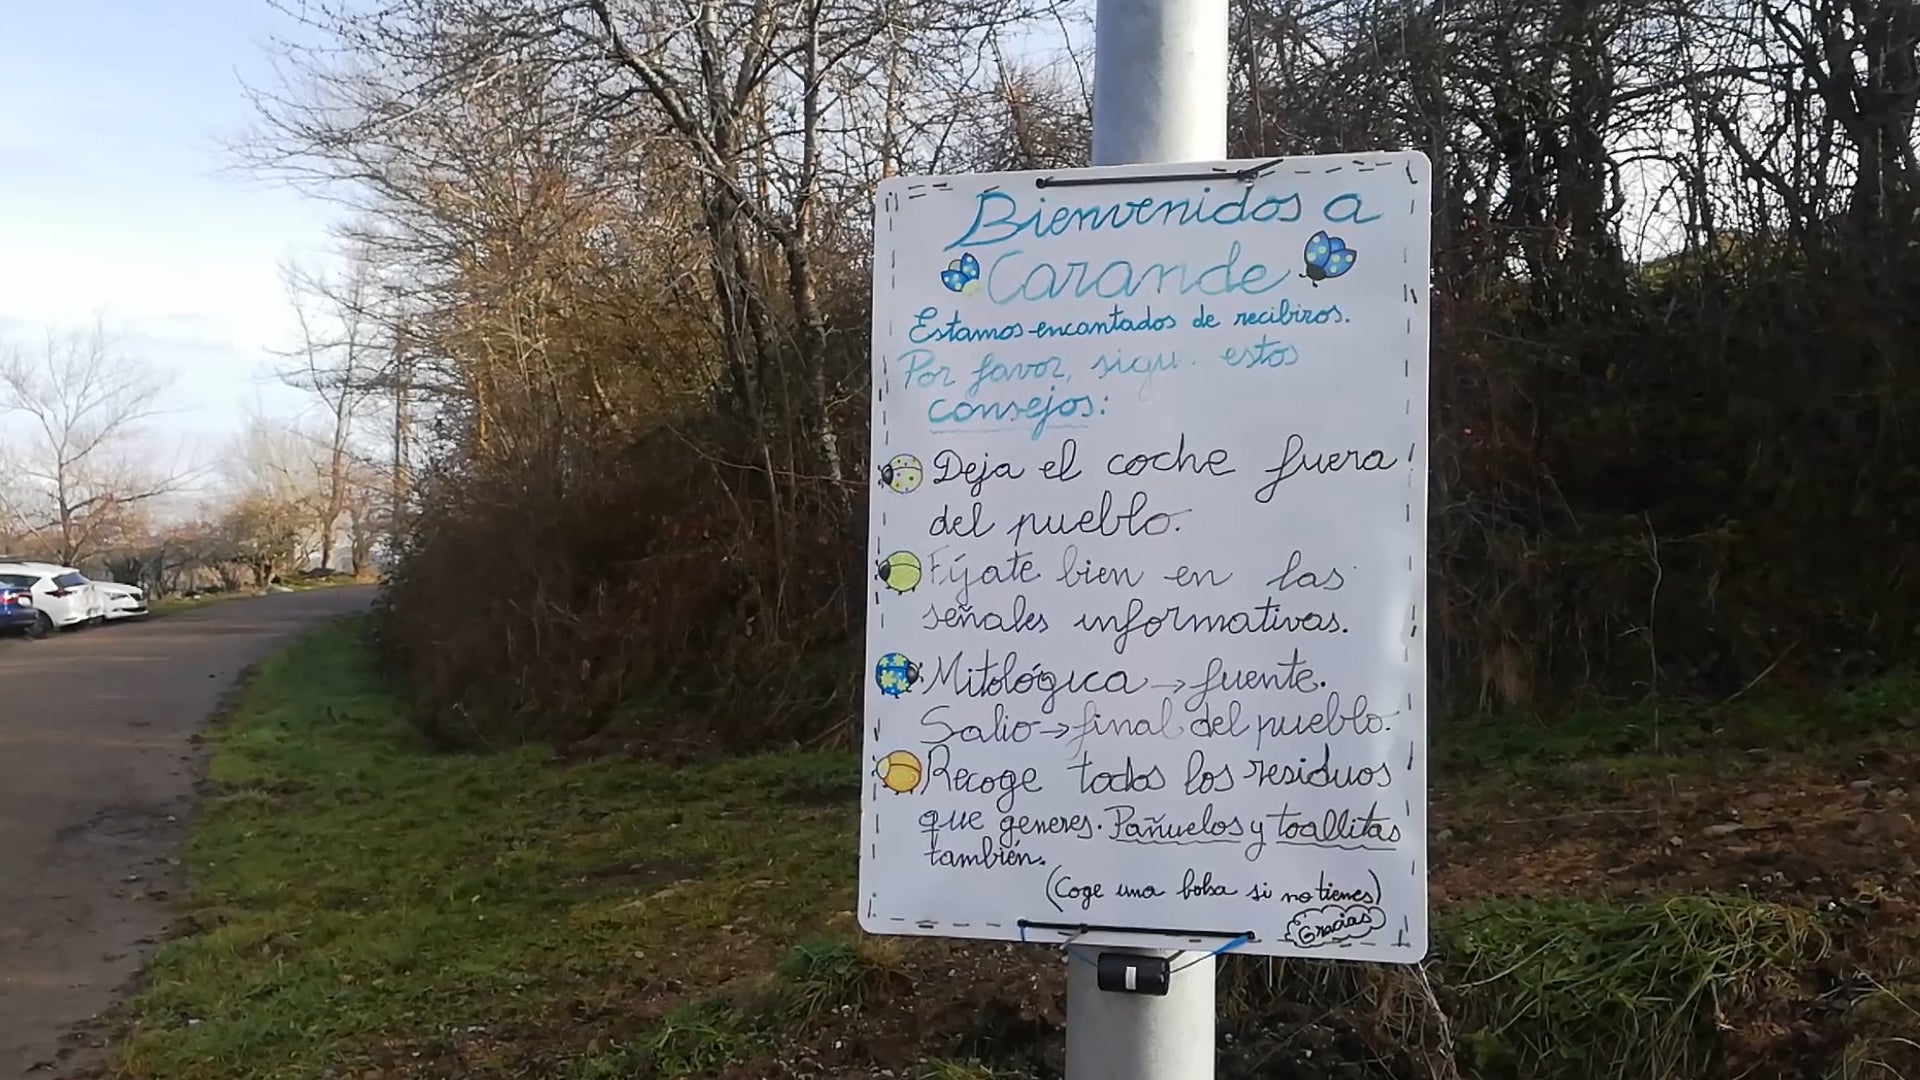 Bienvenidos a
Carande
Estamos encantados de recibiros.
Por favor, estos
consejos:
Deja el coche fuera
del pueblo.
Fíjate bien en las
señales informativas.
Mitológica → fuente.
Salio → final del pueblo.
Recoge todos los residuos
que generes. Pañuelos y toallitas
también.
(Coge una bolsa si no tienes)
Gracias